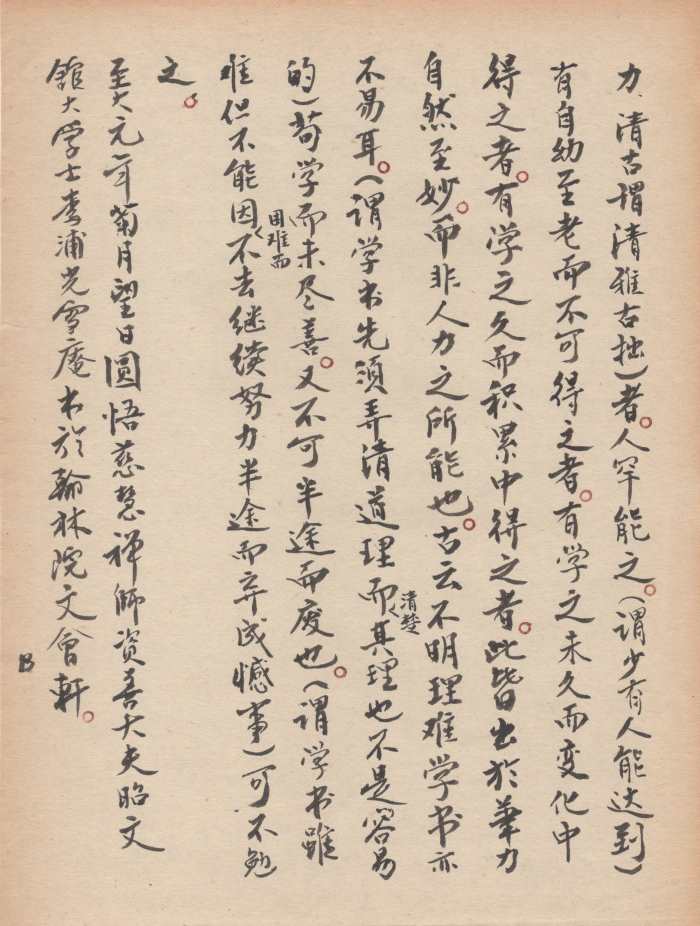 力、清古谓清雅古拙)者。人罕能之。(谓少有人能达到)
有自幼至老而不可得之者。有学之未久而变化中
得之者。有学之久而积累中得之者。此皆出於笔力
自然至妙。而非人力之所能也。古云不明理难学书亦
不易耳。(谓学书先须弄清道理而清楚其理也不是容易
的)苟学而未尽善。又不可半途而废也。(谓学书虽
难但不能因困难而不去继续努力半途而弃成憾事)可不勉
之。
至大元年菊月望日圆悟慈慧禅师资善大夫昭文
馆大学士李溥光雪庵书於翰林院文會軒。
B